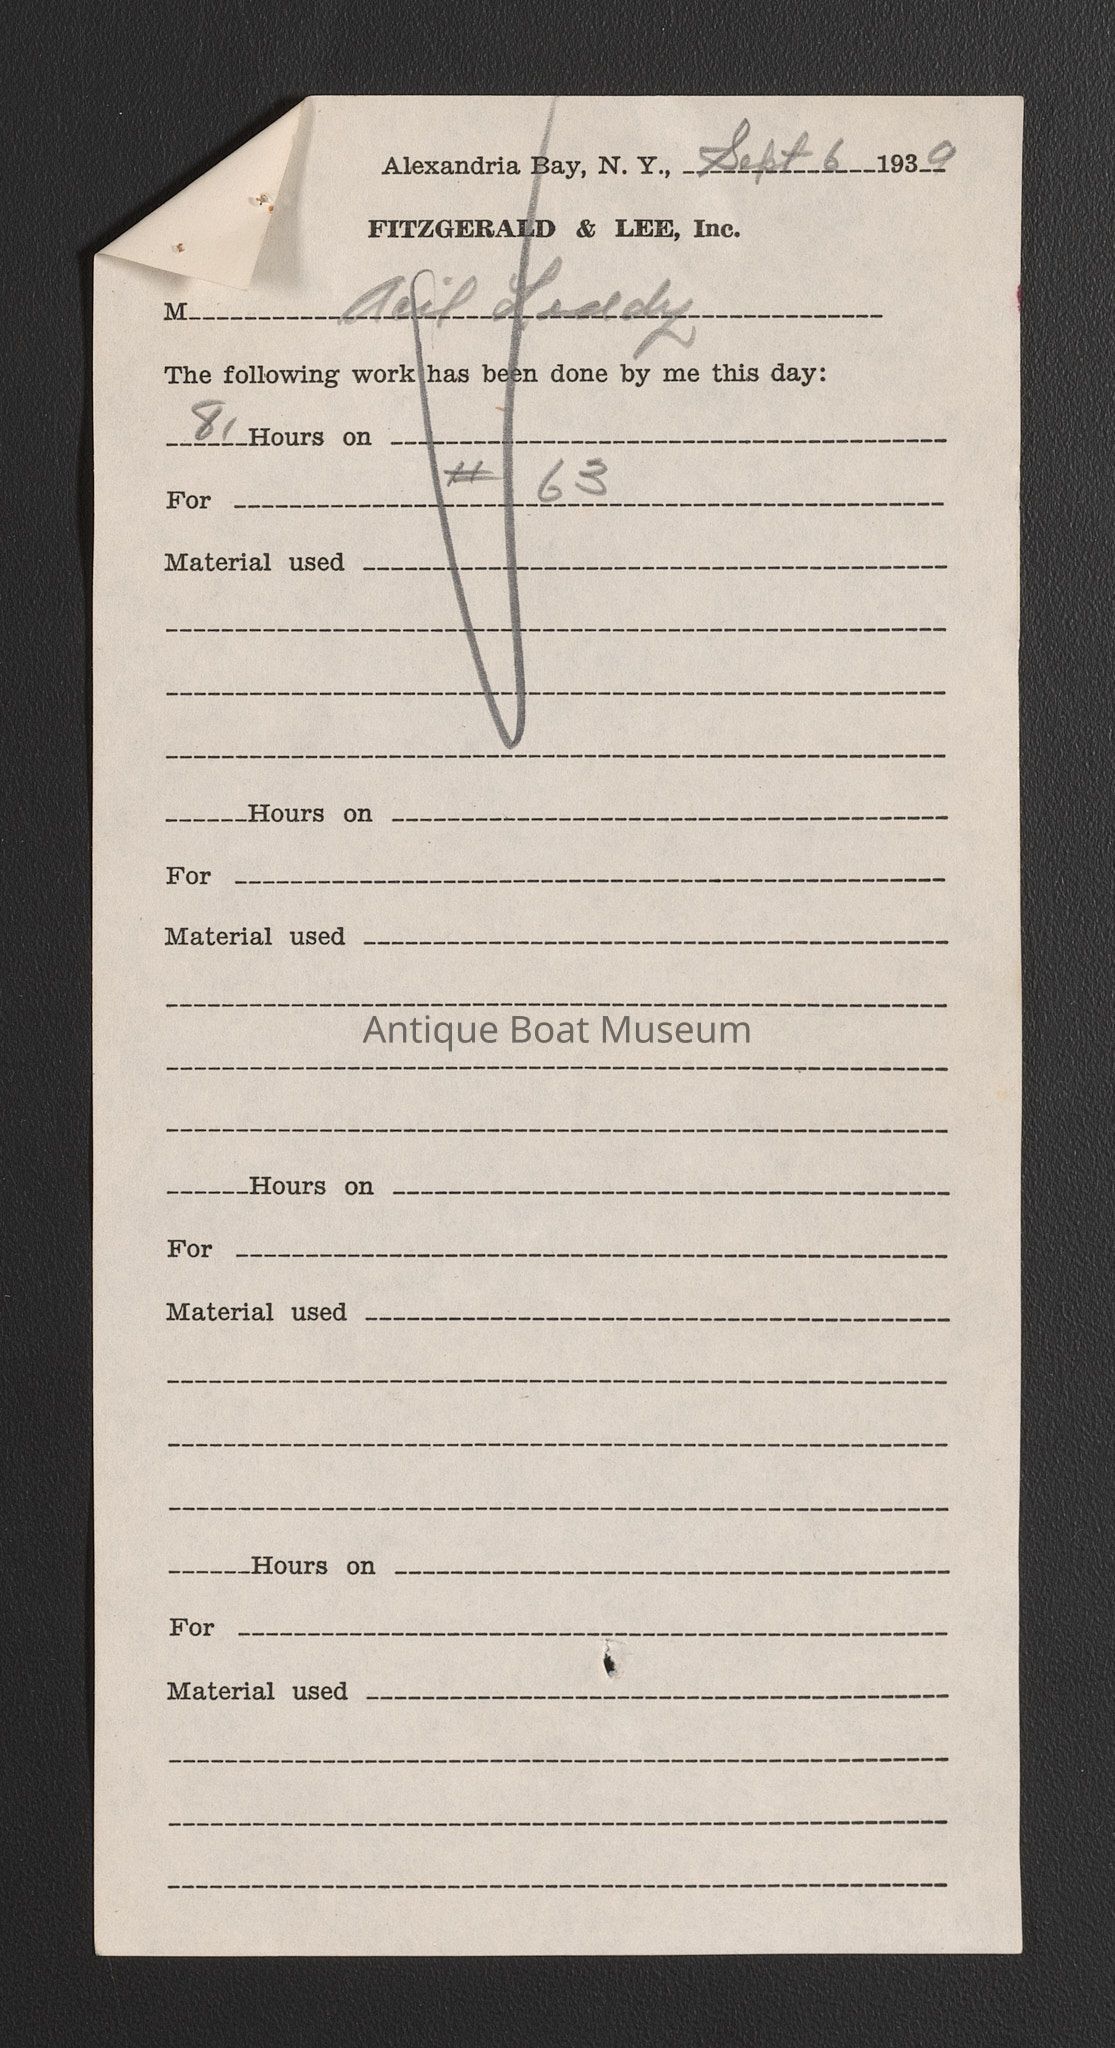 Alexandria Bay, N. Y., Sept 6 1939
FITZGERALD & LEE, Inc.
M Leddy
The following work has been done by me this day:
8 Hours on
For # 63
Material used
Hours on
For
Material used
Antique Boat Museum
Hours on
For
Material used
Hours on
For
Material used